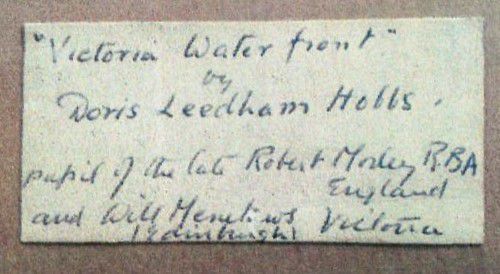 "Victoria Water front"
by
Doris Leedham Hobbs.
pupil of the late Robert Morley RBA
England
and Will Menelaws Victoria
(Edinburgh)